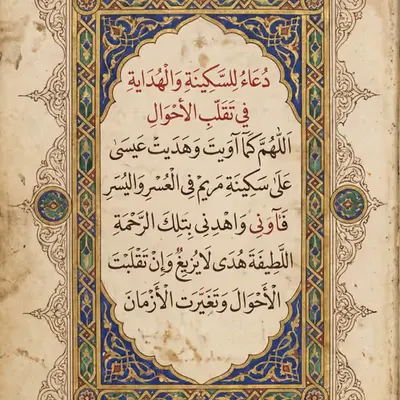 دُعَاءُ لِلسَّكِينَةِ وَالْهُدَايَةِ
فِي تَقَلُّبِ الْأَحْوَالِ
اَللّٰهُمَّ كَمَا آوَيْتَ وَهَدَيْتَ عِيسَىٰ
عَلَىٰ سَكِينَةِ مَرْيَمَ فِي الْعُسْرِ وَالْيُسْرِ
فَآوِنِي وَاهْدِنِي بِتِلْكَ الرَّحْمَةِ
اللَّطِيفَةِ هُدًى لَا يَزِيغُ وَإِنْ تَقَلَّبَتْ
الْأَحْوَالُ وَتَغَيَّرَتِ الْأَزْمَانُ